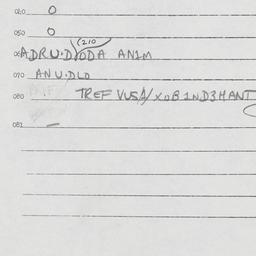 020 O
050 O
(210
060 ADRU·D/ODA AN1M
070 ANU·DLO
080 TREF VUSA/XOB1ND3HANT
081 —